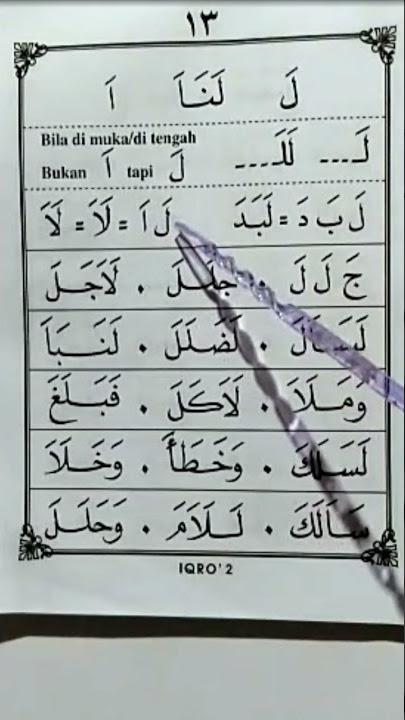 ١٣
لَ لَنَاَ اَ
Bila di muka/di tengah
لَـ... لَلَـ...
Bukan اَ tapi لَ
لَ بَ دَ = لَبَدَ لَ اَ = لَاَ = لَاَ
جَ لَ لَ . جَلَلَ . لَاَجَلَ
لَسَاَلَ . لَضَلَلَ . لَنَـبَاَ
وَمَـلَاَ . لَاَكَلَ . فَبَـلَغَ
لَسَلَكَ . وَخَطَأَ . وَخَلَاَ
سَاَلَكَ . لَـلَاَمَ . وَحَلَـلَ
IQRO' 2